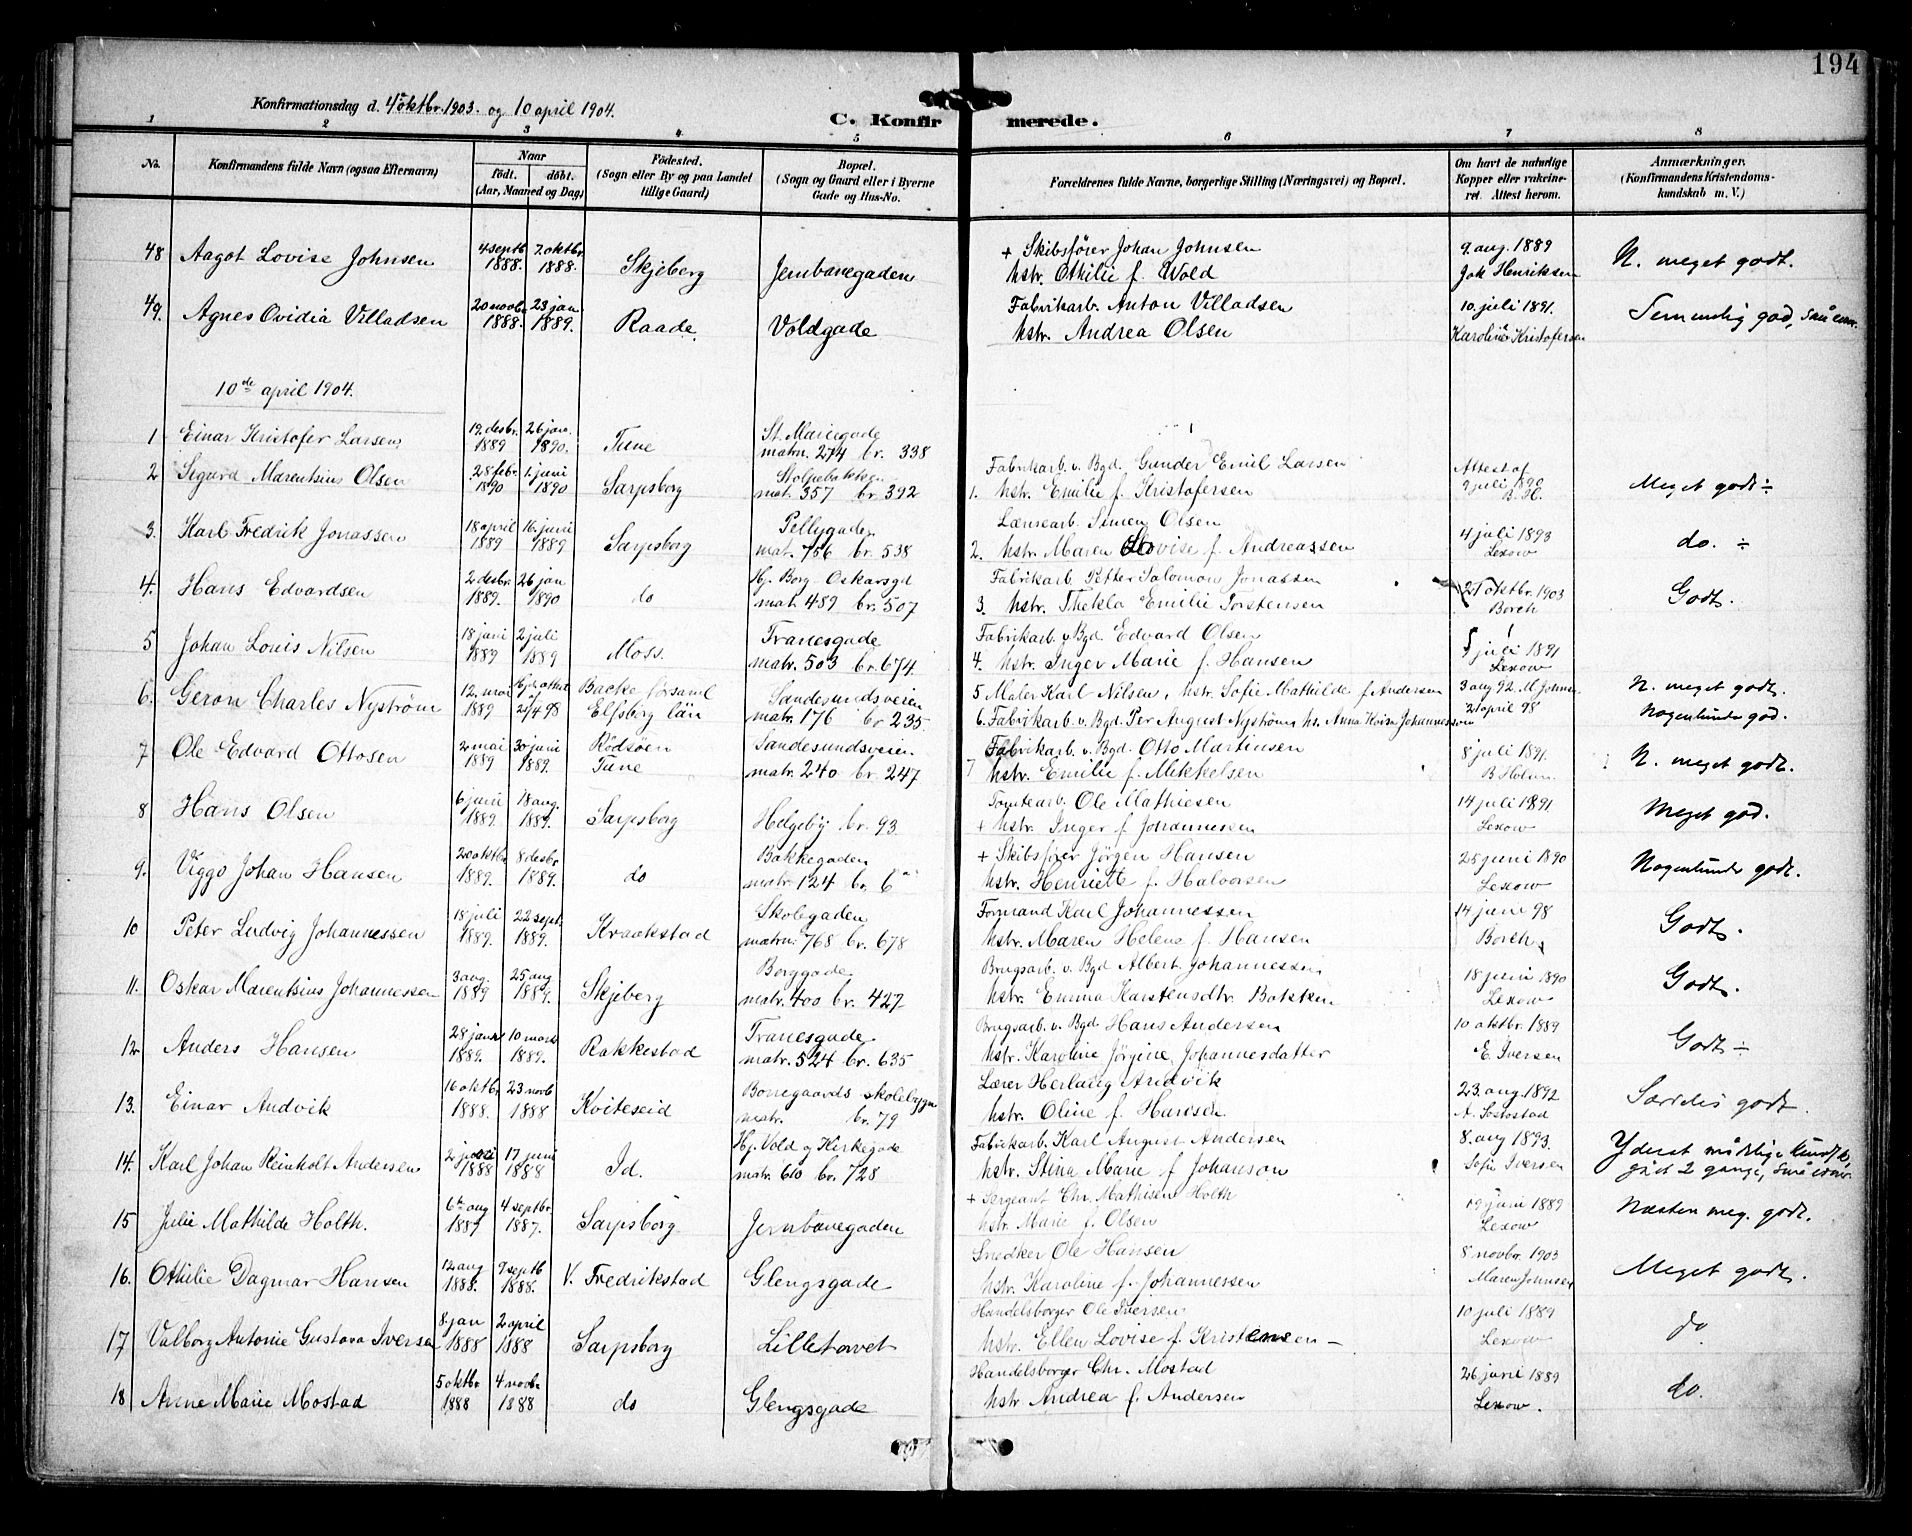 194
Konfirmationsdag d. 4 oktbr. 1903. og 10 april 1904.
C. Konfirmerede.
1 2 3 4 5 6 7 8
No.
Konfirmandens fulde Navn (ogsaa Efternavn)
Naar
født. døbt.
(Aar, Maaned og Dag)
Fødested.
(Sogn eller By og paa Landet
tillige Gaard)
Bopæl.
(Sogn og Gaard eller i Byerne
Gade og Hus-No.
Forældrenes fulde Navne, borgerlige Stilling (Næringsvei) og Bopæl.
Om havt de naturlige
Kopper eller vakcine-
ret. Attest herom.
Anmærkninger.
(Konfirmandens Kristendoms-
kundskab m. V.)
48 Aagot Lovise Johnsen 4 septb. 1888. 7 oktbr. 1888. Skjeberg Jernbanegaden
+ Skibsfører Johan Johnsen
hstr. Othilie f. Wold
9. aug. 1889
Joh Henriksen
N. meget godt.
49. Agnes Ovidia Villadsen 20 novbr 1888. 23 jan 1889. Raade. Voldgade
Fabrikarb. Anton Villadsen
hstr. Andrea Olsen
10. juli 1891.
Karoline Kristofersen
10de april 1904.
1 Einar Kristofer Larsen 19. desbr. 1889 26 jan. 1890. Tune St. Mariegade
matr. 274 br. 338
Fabrikarb. v. Bgd. Gunder Emil Larsen
1. hstr. Emilie f. Kristofersen
Attest af
9 juli 1890
Meget godt ÷
2 Sigurd Marentsius Olsen 28 febr. 1890 1. juni 1890 Sarpsborg Stolpebakken
mat. 357 br. 392
Lænsearb. Simen Olsen
2. hstr. Maren Lovise f. Andreassen
4 juli 1893
Lexow
do. ÷
3. Karl Fredrik Jonassen 18 april 1889 16. juni 1889 Sarpsborg Pellygaden
mat. 756 br. 538
Fabrikarb. Petter Salomon Jonassen
3. hstr. Thekla Emilie Torstensen
21 oktbr. 1903
Borch
Godt.
4. Hans Edvardsen 2 desbr. 1889. 26 jan 1890 do Hj. Borg- Oskarsgd
mat. 489 br. 507
Fabrikarb. v Bgd. Edvard Olsen
4. hstr. Inger Marie f. Hansen
juli 1891
Lexow
5 Johan Louis Nilsen 18 juni 1889 2 juli 1889 Moss. Tranesgade
matr. 503 br. 674.
5 Maler Karl Nilsen, hstr. Sofie Mathilde f. Andersen 3 aug 92. M. Johnsen
N. meget godt.
6. Geron Charles Nystrøm 12. mai 1889 Backe församl
Elfsborg län
Sandesundsveien
matr. 176 br 235.
6. Fabrikarb. v. Bgd. Per August Nystrøm hs. Anna Kaisa Johannesson 2 april 98
Nogenlunde god.
7 Ole Edvard Ottosen 2 mai 1889 30 juni 1889. Rødsøen
Tune
Sandesundsveien
matr. 240 br. 247
Fabrikarb. v. Bgd. Otto Martinsen
7 hstr. Emilie f. Mikkelsen
8 juli 1891.
B Holm
N. meget godt.
8 Hans Olsen 6 juni 1889. 18 aug. 1889. Sarpsborg Helgeby br. 93.
Tomtearb. Ole Mathiesen
+ hstr. Inger f. Johannessen
14 juli 1891
Lexow
Meget god.
9. Viggo Johan Hansen 20 oktbr 1889. 8 desbr. 1889. do Bakkegaden
matr. 124 br. 6
+ Skibsfører Jørgen Hansen
hstr. Henriette f. Halvorsen
25 juni 1890
Lexow
Nogenlunde godt.
10 Peter Ludvig Johannessen 18 juli 1889. 22 sept. 1889. Kraakstad Skolegaden
matr. 768 br. 678
Formand Karl Johannessen
hstr. Maren Helene f. Hansen
14 juni 98
Borch
Godt.
11. Oskar Marentsius Johannessen 3 aug. 1889 25 aug 1889. Skjeberg Borggade
matr. 400 br. 427
Brugsarb. v. Bgd Albert Johannessen
hstr. Emma Karstensdtr. Bakken
18 juni 1890
Lexow
Godt.
12 Anders Hansen 28 jan 1889. 10 mars 1889. Rakkestad Tranesgade
matr. 524 br. 635
Brugsarb. v. Bgd Hans Andersen
hstr. Karoline Jørgine Johannesdatter
10 oktbr. 1889
E. Iversen
Godt ÷
13. Einar Andvik 16 oktbr. 1888. 23 novb 1888 Kviteseid Borregaards skolebygn
matr. br. 79
Lærer Herlaug Andvik
hstr. Oline f. Hansen
23. aug. 1892
Særdeles godt.
14. Karl Johan Reinholt Andersen 1888 17 juni 1888 Id. Hj. Vold og Kirkegade
matr. 610 br. 728
Fabrikarb. Karl August Andersen
hstr. Stina Marie f. Johanson
8. aug 1893.
Sofie Iversen
Yderst mådelig kundsk.
gåt 2 gange,
15 Julie Mathilde Holth. 6te aug 1887 4 septbr. 1887. Sarpsborg Jernbanegaden
+ Sergeant Chr. Mathisen Holth
hstr. Marie f. Olsen
19 juni 1889
Lexow
Næsten meg. godt.
16. Othilie Dagmar Hansen 12 aug 1888. 9 septb 1888. V. Fredrikstad Glengsgade
Snedker Ole Hansen
hstr. Karoline f. Johannessen
8 novbr. 1903
Maren Johnsen
Meget godt.
17 Valborg Antonie Gustava Iversen 8 jan 1888 2 april 1888 Sarpsborg Lilletorvet
Handelsborger Ole Iversen
hstr. Ellen Lovise f. Kristensen —
10 juli 1889
Lexow
do
18 Anne Marie Mostad 5 oktbr 1888 4 novbr. 1888 do Glengsgade
Handelsborger Chr. Mostad
hstr. Andrea f. Andersen
26 juni 1889
Lexow.
do.